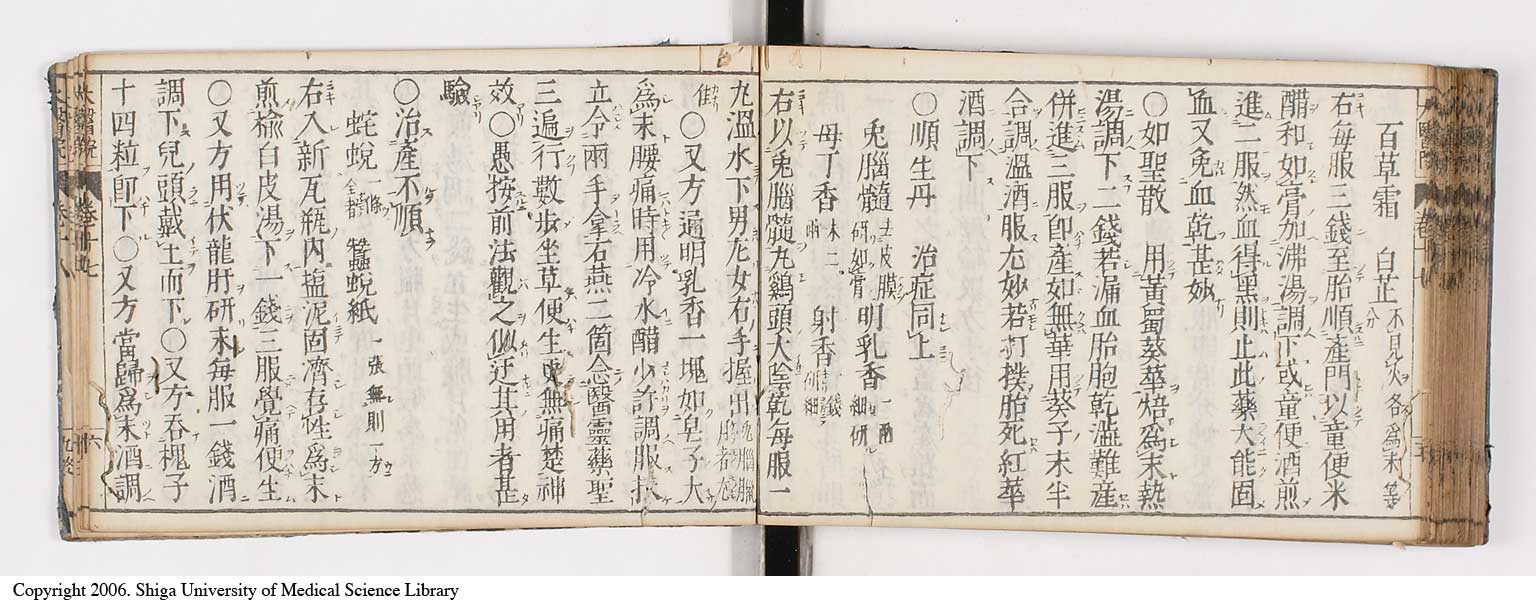 百草霜 白芷 不見火各爲末等分
右每服三錢至胎順產門以童便米
醋和如膏加沸湯調下或童便酒煎
進二服然血得黑則止此藥大能固
血又免血乾甚妙
〇如聖散 用黃蜀葵華焙爲末熱
湯調下二錢若漏血胎胞乾澁難產
併進三服即產如無華用葵子末半
合調溫酒服尤妙若打撲胎死紅華
酒調下
〇順生丹 治症同上
兔腦髓 去皮膜研如膏 明乳香 一兩細研
母丁香 末二兩 射香 錢研細
右以兔腦髓丸鷄頭大陰乾每服一
丸溫水下男左女右手握出
〇又方通明乳香一塊如皂子大
爲末腰痛時用冷水醋少許調服扶
立令兩手拿石燕二箇念醫靈藥聖
三遍行數步坐草便生更無痛楚神
效〇愚按前法觀之似迂其用者甚
驗
〇治產不順
蛇蛻 一條全者 蠶蛻紙 一張無則一方
右入新瓦瓶內塩泥固濟存性爲末
煎楡白皮湯下一錢三服覺痛便生
〇又方用伏龍肝研末每服一錢酒
調下兒頭戴土而下〇又方吞槐子
十四粒卽下〇又方當歸爲末酒調
Copyright 2006. Shiga University of Medical Science Library